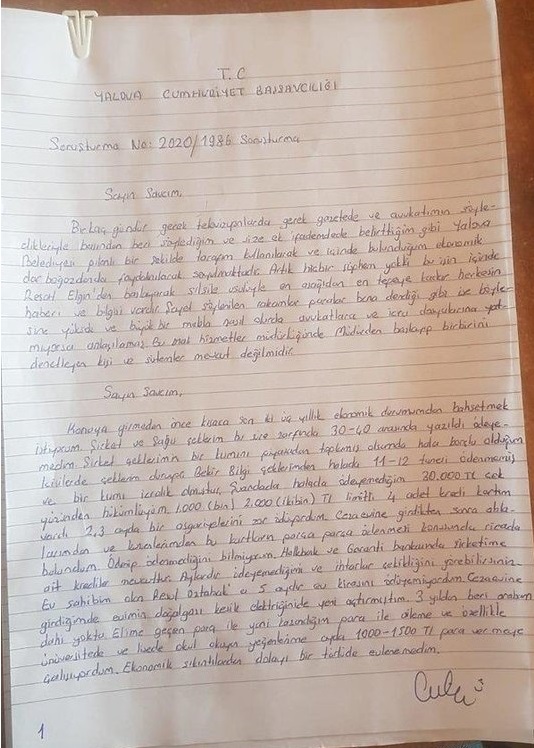 T.C
YALOVA CUMHURİYET BAŞSAVCILIĞI
Soruşturma No: 2020/1986 Soruşturma
Sayın Savcım,
Birkaç gündür gerek televizyonlarda gerek gazetede ve avukatımın söyle-
dikleriyle başından beri söylediğim ve size ek ifademdede belirttiğim gibi Yalova
Belediyesi planlı bir şekilde tarafım kullanılarak ve içinde bulunduğum ekonomik
dar boğazdanda faydalanılarak soyulmaktadır. Artık hiçbir şüphem yokki bu işin içinde
Resat Elgin'den başlayarak silsile usulüyle en aşağıdan en tepeye kadar herkesin
haberi ve bilgisi vardır. Sayet söylenilen rakamlar paralar bana dendiği gibi ise böyle-
sine yüksek ve büyük bir mebla nasıl olurda avukatlara ve icra dosyalarına yat-
mıyorsa anlaşılamaz. Bu mali hizmetler müdürlüğünde Müdürden başlayıp birbirini
denetleyen kişi ve sistemler mevcut değilmidir.
Sayın Savcım,
Konuya girmeden önce kısaca son iki üç yıllık ekonomik durumumdan bahsetmek
istiyorum. Şirket ve Şahsi çeklerim bu süre zarfında 30-40 arasında yazıldı ödeye-
medim. Şirket çeklerimin bir kısmını piyasadan toplamış olsamda hala borçlu olduğum
kişilerde çeklerim duruyor. Bekir Bilgi çeklerimden halada 11-12 tanesi ödenmemiş
ve bir kısmı icralık olmuştur. Şuandada halada ödeyemediğim 30.000 TL çek
yüzünden hükümlüyüm. 1.000 (bin) 2.000 (ikibin) TL limitli 4 adet kredi kartım
vardı 2,3 ayda bir asgarilerini zor ödüyordum. Cezaevine girdikten sonra abla-
larımdan ve kuzenlerimden bu kartların parça parça ödenmesi konusunda ricada
bulundum. Ödenip ödenmediğini bilmiyorum. Halkbank ve Garanti bankasında şirketime
ait krediler mevcuttur. Aylardır ödeyemediğimi ve ihtarlar çekildiğini görebilirsiniz.
Ev sahibim olan Resul 5 aydır ev kirasını ödeyemiyordum. Cezaevine
girdiğimde evimin doğalgazı kesik elektriğinide yeni açtırmıştım. 3 yıldan beri arabam
dahi yoktu. Elime geçen para ile yani kazandığım para ile aileme ve özellikle
üniversitede ve lisede okul okuyan yeğenlerime ayda 1000-1500 Tl para vermeye
çalışıyordum. Ekonomik sıkıntılardan dolayı bir türlüde evlenemedim.
1